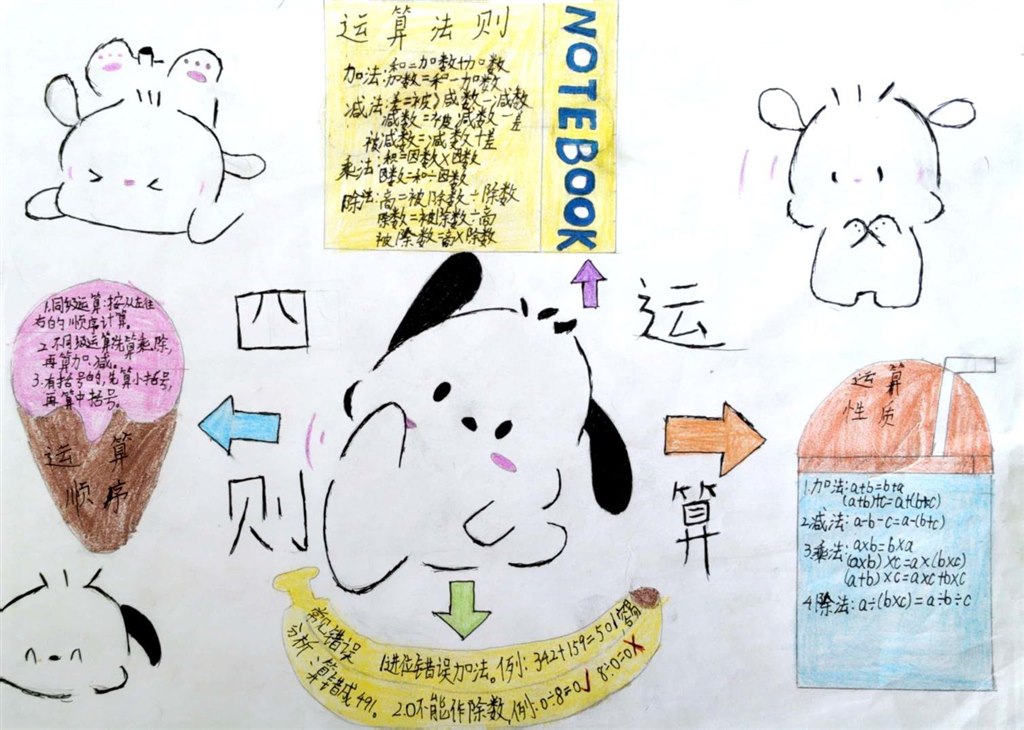 运算法则
加法:和=加数+加数
加数=和-加数
减法:差=被减数-减数
减数=被减数-差
被减数=减数+差
乘法:积=因数×因数
因数=积÷因数
除法:商=被除数÷除数
除数=被除数÷商
被除数=商×除数
NOTEBOOK
四
运
则
算
1.同级运算:按从左往
右的顺序计算。
2.不同级运算先算乘,除,
再算加,减。
3.有括号的,先算小括号,
再算中括号。
运算
顺序
运算
性质
1.加法:a+b=b+a
(a+b)+c=a+(b+c)
2.减法:a-b-c=a-(b+c)
3.乘法:a×b=b×a
(a×b)×c=a×(b×c)
(a+b)×c=a×c+b×c
4.除法:a÷(b×c)=a÷b÷c
常见错误
分析
1.进位错误加法。例:342+159=501容易
算错成491。
2.0不能作除数,例:0÷8=0√ 8÷0=0×